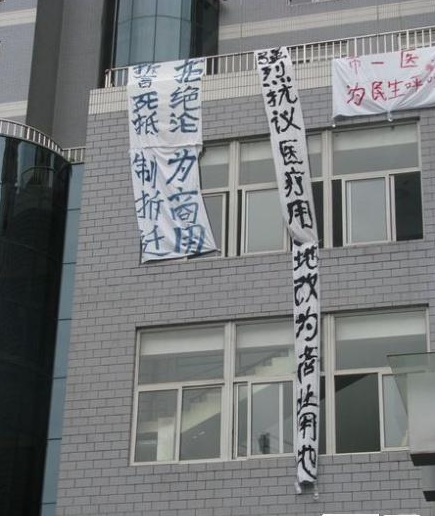 拒绝沦为商用
誓死抵制拆迁
强烈抗议医疗用地改为商业用地
市一医
为民生呼